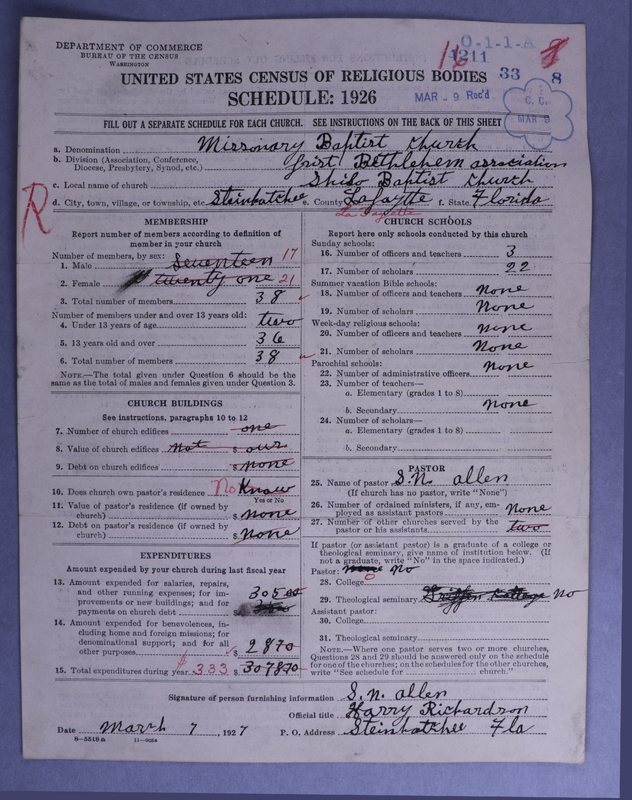 DEPARTMENT OF COMMERCE
BUREAU OF THE CENSUS
WASHINGTON
O-1-1-A
1211
33 8
UNITED STATES CENSUS OF RELIGIOUS BODIES
SCHEDULE: 1926
MAR - 9 Rec'd
C. C.
MAR 9
FILL OUT A SEPARATE SCHEDULE FOR EACH CHURCH. SEE INSTRUCTIONS ON THE BACK OF THIS SHEET
a. Denomination Missionary Baptist Church
b. Division (Association, Conference, Diocese, Presbytery, Synod, etc.) frist Bethlehem association
c. Local name of church Shilo Baptist Church
d. City, town, village, or township, etc. Steinhatchee e. County Lafaytte f. State Florida
La Fayette
R
MEMBERSHIP
Report number of members according to definition of
member in your church
Number of members, by sex:
1. Male Seventeen 17
2. Female twenty one 21
3. Total number of members 38
Number of members under and over 13 years old:
4. Under 13 years of age two
5. 13 years old and over 36
6. Total number of members 38
NOTE.—The total given under Question 6 should be the
same as the total of males and females given under Question 3.
CHURCH BUILDINGS
See instructions, paragraphs 10 to 12
7. Number of church edifices one
8. Value of church edifices not $ our
9. Debt on church edifices $ none
10. Does church own pastor's residence No Know
Yes or No
11. Value of pastor's residence (if owned by
church) $ none
12. Debt on pastor's residence (if owned by
church) $ none
EXPENDITURES
Amount expended by your church during last fiscal year
13. Amount expended for salaries, repairs,
and other running expenses; for im-
provements or new buildings; and for
payments on church debt 305 00
14. Amount expended for benevolences, in-
cluding home and foreign missions; for
denominational support; and for all
other purposes $ 28 70
15. Total expenditures during year $ 333 $ 307870
CHURCH SCHOOLS
Report here only schools conducted by this church
Sunday schools:
16. Number of officers and teachers 3
17. Number of scholars 22
Summer vacation Bible schools:
18. Number of officers and teachers none
19. Number of scholars None
Week-day religious schools:
20. Number of officers and teachers none
21. Number of scholars None
Parochial schools:
22. Number of administrative officers none
23. Number of teachers—
a. Elementary (grades 1 to 8)
b. Secondary none
24. Number of scholars—
a. Elementary (grades 1 to 8)
b. Secondary
PASTOR
25. Name of pastor S.N. allen
(If church has no pastor, write "None")
26. Number of ordained ministers, if any, em-
ployed as assistant pastors None
27. Number of other churches served by the
pastor or his assistants two
If pastor (or assistant pastor) is a graduate of a college or
theological seminary, give name of institution below. (If
not a graduate, write "No" in the space indicated.)
Pastor: none No
28. College 0
29. Theological seminary No
Assistant pastor:
30. College
31. Theological seminary
NOTE.—Where one pastor serves two or more churches,
Questions 28 and 29 should be answered only on the schedule
for one of the churches; on the schedules for the other churches,
write "See schedule for church."
Signature of person furnishing information S. N. allen
Official title Harry Richardson
Date March 7, 1927 P. O. Address Steinhatchee Fla
8—5518a 11—9054